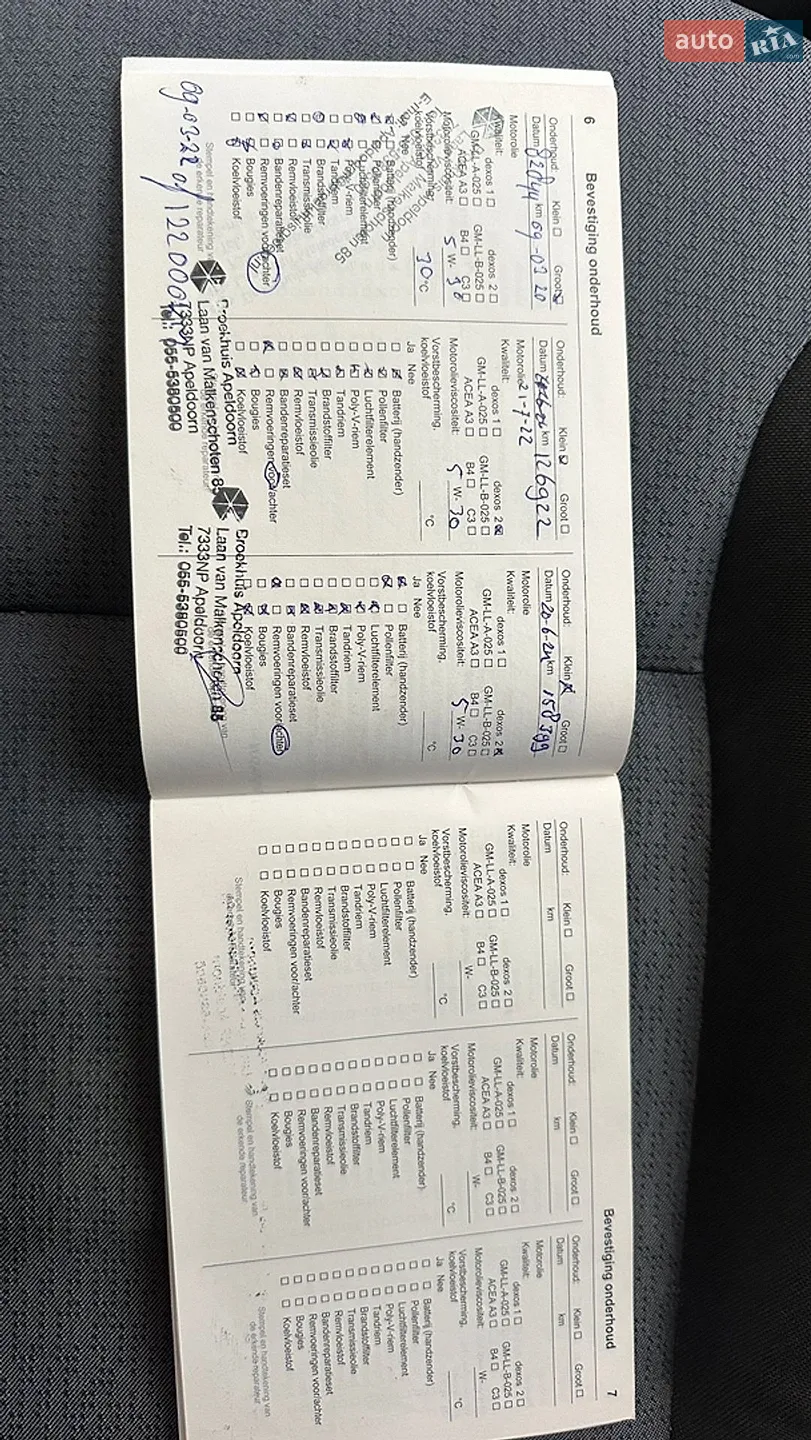 auto RIA.com
6
Bevestiging onderhoud
Onderhoud: Klein Groot
Datum 82844 km 09-03 20
Motorolie
Kwaliteit: dexos 1 dexos 2
GM-LL-A-025 GM-LL-B-025
ACEA A3 B4 C3
Motorolieviscositeit: 5 W- 30
Vorstbescherming,
koelvloeistof 30 °C
Ja Nee
Batterij (handzender)
Pollenfilter
Luchtfilterelement
Poly-V-riem
Tandriem
Brandstoffilter
Transmissieolie
Remvloeistof
Bandenreparatieset
Remvoeringen voor/achter
Bougies
Koelvloeistof
Stempel en handtekening van
de erkende reparateur
09-03-22
122000
Broekhuis Apeldoorn
Laan van Malkenschoten 85
7333NP Apeldoorn
Tel.: 055-5380500
Onderhoud: Klein Groot
Datum km 126922
Motorolie 21-7-22
Kwaliteit: dexos 1 dexos 2
GM-LL-A-025 GM-LL-B-025
ACEA A3 B4 C3
Motorolieviscositeit: 5 W- 30
Vorstbescherming,
koelvloeistof °C
Ja Nee
Batterij (handzender)
Pollenfilter
Luchtfilterelement
Poly-V-riem
Tandriem
Brandstoffilter
Transmissieolie
Remvloeistof
Bandenreparatieset
Remvoeringen voor/achter
Bougies
Koelvloeistof
Broekhuis Apeldoorn
Laan van Malkenschoten 85
7333NP Apeldoorn
Tel.: 055-5380500
Onderhoud: Klein Groot
Datum 20-6-24 km 158399
Motorolie
Kwaliteit: dexos 1 dexos 2
GM-LL-A-025 GM-LL-B-025
ACEA A3 B4 C3
Motorolieviscositeit: 5 W- 30
Vorstbescherming,
koelvloeistof °C
Ja Nee
Batterij (handzender)
Pollenfilter
Luchtfilterelement
Poly-V-riem
Tandriem
Brandstoffilter
Transmissieolie
Remvloeistof
Bandenreparatieset
Remvoeringen voor/achter
Bougies
Koelvloeistof
Bevestiging onderhoud
7
Onderhoud: Klein Groot
Datum km
Motorolie
Kwaliteit: dexos 1 dexos 2
GM-LL-A-025 GM-LL-B-025
ACEA A3 B4 C3
Motorolieviscositeit: W-
Vorstbescherming,
koelvloeistof °C
Ja Nee
Batterij (handzender)
Pollenfilter
Luchtfilterelement
Poly-V-riem
Tandriem
Brandstoffilter
Transmissieolie
Remvloeistof
Bandenreparatieset
Remvoeringen voor/achter
Bougies
Koelvloeistof
Stempel en handtekening van
Onderhoud: Klein Groot
Datum km
Motorolie
Kwaliteit: dexos 1 dexos 2
GM-LL-A-025 GM-LL-B-025
ACEA A3 B4 C3
Motorolieviscositeit: W-
Vorstbescherming,
koelvloeistof °C
Ja Nee
Batterij (handzender)
Pollenfilter
Luchtfilterelement
Poly-V-riem
Tandriem
Brandstoffilter
Transmissieolie
Remvloeistof
Bandenreparatieset
Remvoeringen voor/achter
Bougies
Koelvloeistof
Stempel en handtekening van
de erkende reparateur
Onderhoud: Klein Groot
Datum km
Motorolie
Kwaliteit: dexos 1 dexos 2
GM-LL-A-025 GM-LL-B-025
ACEA A3 B4 C3
Motorolieviscositeit: W-
Vorstbescherming,
koelvloeistof °C
Ja Nee
Batterij (handzender)
Pollenfilter
Luchtfilterelement
Poly-V-riem
Tandriem
Brandstoffilter
Transmissieolie
Remvloeistof
Bandenreparatieset
Remvoeringen voor/achter
Bougies
Koelvloeistof
Stempel en handtekening van
de erkende reparateur